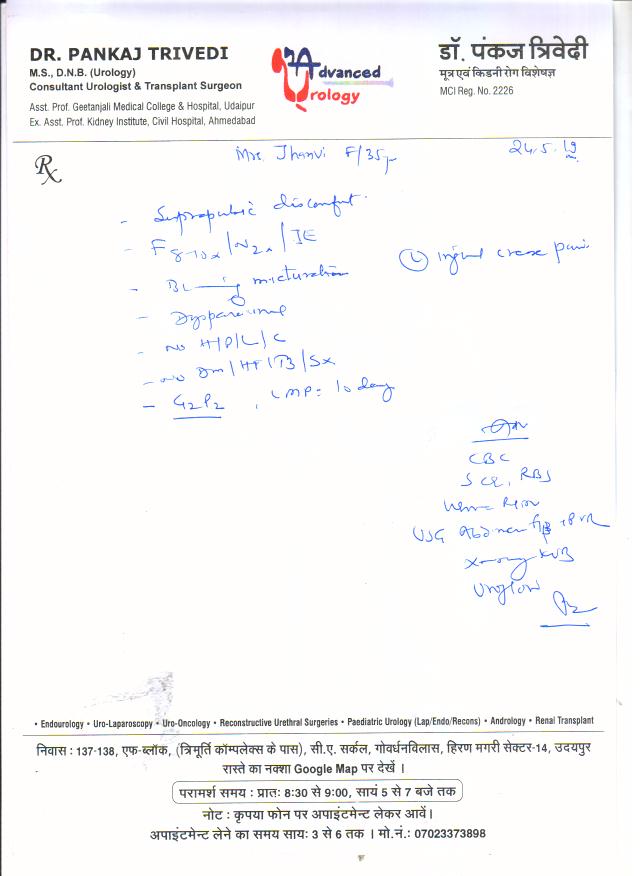 DR. PANKAJ TRIVEDI
M.S., D.N.B. (Urology)
Consultant Urologist & Transplant Surgeon
Asst. Prof. Geetanjali Medical College & Hospital, Udaipur
Ex. Asst. Prof. Kidney Institute, Civil Hospital, Ahmedabad
Advanced
Urology
डॉ. पंकज त्रिवेदी
मूत्र एवं किडनी रोग विशेषज्ञ
MCI Reg. No. 2226
Rx
Mrs. Jhanvi F/35y
24.5.19
- Suprapubic discomfort
- F8-10x/N2x/IE
(L) inguinal crease pain
- micturation
- Dyspareunia
- No H/P/L/C
- No Dm/HT/TB/Sx
- G2P2, LMP= 10 day
CBC
S Cr, RBS
Urine R/M
USG Abdomen + PVR
X-ray KUB
Uroflow
• Endourology • Uro-Laparoscopy • Uro-Oncology • Reconstructive Urethral Surgeries • Paediatric Urology (Lap/Endo/Recons) • Andrology • Renal Transplant
निवास : 137-138, एफ-ब्लॉक, (त्रिमूर्ति कॉम्पलेक्स के पास), सी.ए. सर्कल, गोवर्धनविलास, हिरण मगरी सेक्टर-14, उदयपुर
रास्ते का नक्शा Google Map पर देखें ।
परामर्श समय : प्रातः 8:30 से 9:00, सायं 5 से 7 बजे तक
नोट : कृपया फोन पर अपाइंटमेन्ट लेकर आवें।
अपाइंटमेन्ट लेने का समय सायः 3 से 6 तक । मो.नं.: 07023373898